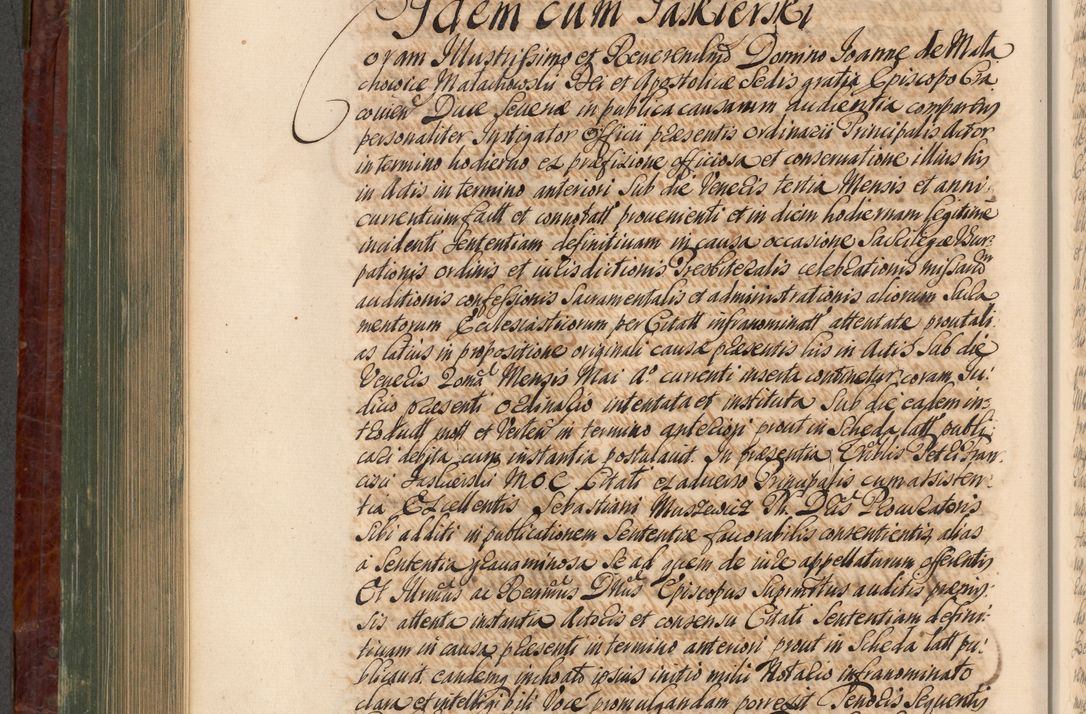 Idem cum Jaskierski
oram Illustrissimo et Reuerendmo Domino Joanne de Mala
chowice Małachowski Dei et Apostolicæ Sedis gratia Episcopo Cra
couien Duce Seueriæ in publica causarum audientia comparens
personaliter Instigator Officii præsentis Ordinarii Principalis Actor
in termino hodierno ex præfixione officiosa et conseruatione illius his
in Actis in termino anteriori sub die Veneris tertia Mensis et anni
currentium fact et connotatt prouenienti et in diem hodiernam legitime
incidenti Sententiam definitiuam in causa occasione Sacrilegæ Vsur,
pationis ordinis et iurisdictionis Presbiteralis celebrationis missarum
auditionis confessionis Sacramentalis et administrationis aliorum Sacra
mentorum Ecclesiasticorum per Citatt infranominatt attentatæ prout ali,
as latius in propositione originali causæ præsentis his in Actis Sub die
Veneris Mensis Mai Ao currenti inserta continetur, coram Ju,
dicio præsenti Ordinario intentata et instituta Sub die eadem in,
in termino anteriori prout in Scheda latt publi
cari debita cum instantia postulauit. In præsentia Petri Fran,
cisci Jaskierski MOC Citati ex aduerso Principalis cum assisten,
tia Excellentis Sebastiani Maszewicz Procuratoris
Sibi additi in publicationem Sententiæ fauorabilis consentientis, alias
a Sententia grauaminosa se ad quem de iure appellaturum offerentis
Et Illrmus ac Rendmus Dnus Episcopus Supinsttus auditis præmis,
sis attenta instantia Actoris et consensu Citati Sententiam defini,
tiuam in causa præsenti in termino anteriori prout in Scheda latt pu,
blicauit eandemq inchoato ipsius initio mihi Notario infranominato
clara et intelligibili Voce promulgandam porrexit Tenoris Sequentis